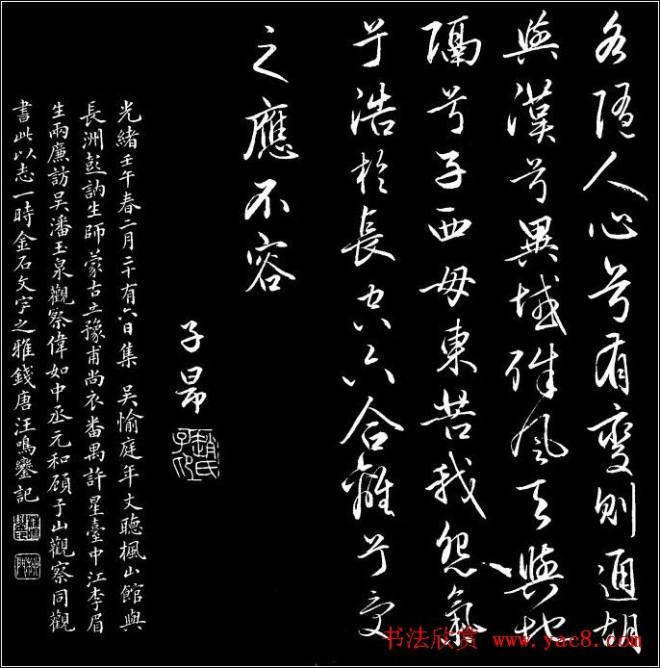 各隨人心兮有變則通胡
與漢兮異域殊風天與地
隔兮子西母東苦我怨氣
兮浩於長空六合雖兮受
之應不容
子昂
趙氏子昂
光緒壬午春二月二十有六日集 吳愉庭年丈聽楓山館與
長洲彭訥生師蒙古立豫甫尚衣番禺許星臺中江李眉
生兩廉訪吳潘玉泉觀察偉如中丞元和顧子山觀察同觀
書此以志一時金石文字之雅錢唐汪鳴鑾記
书法欣赏 www.yac8.com